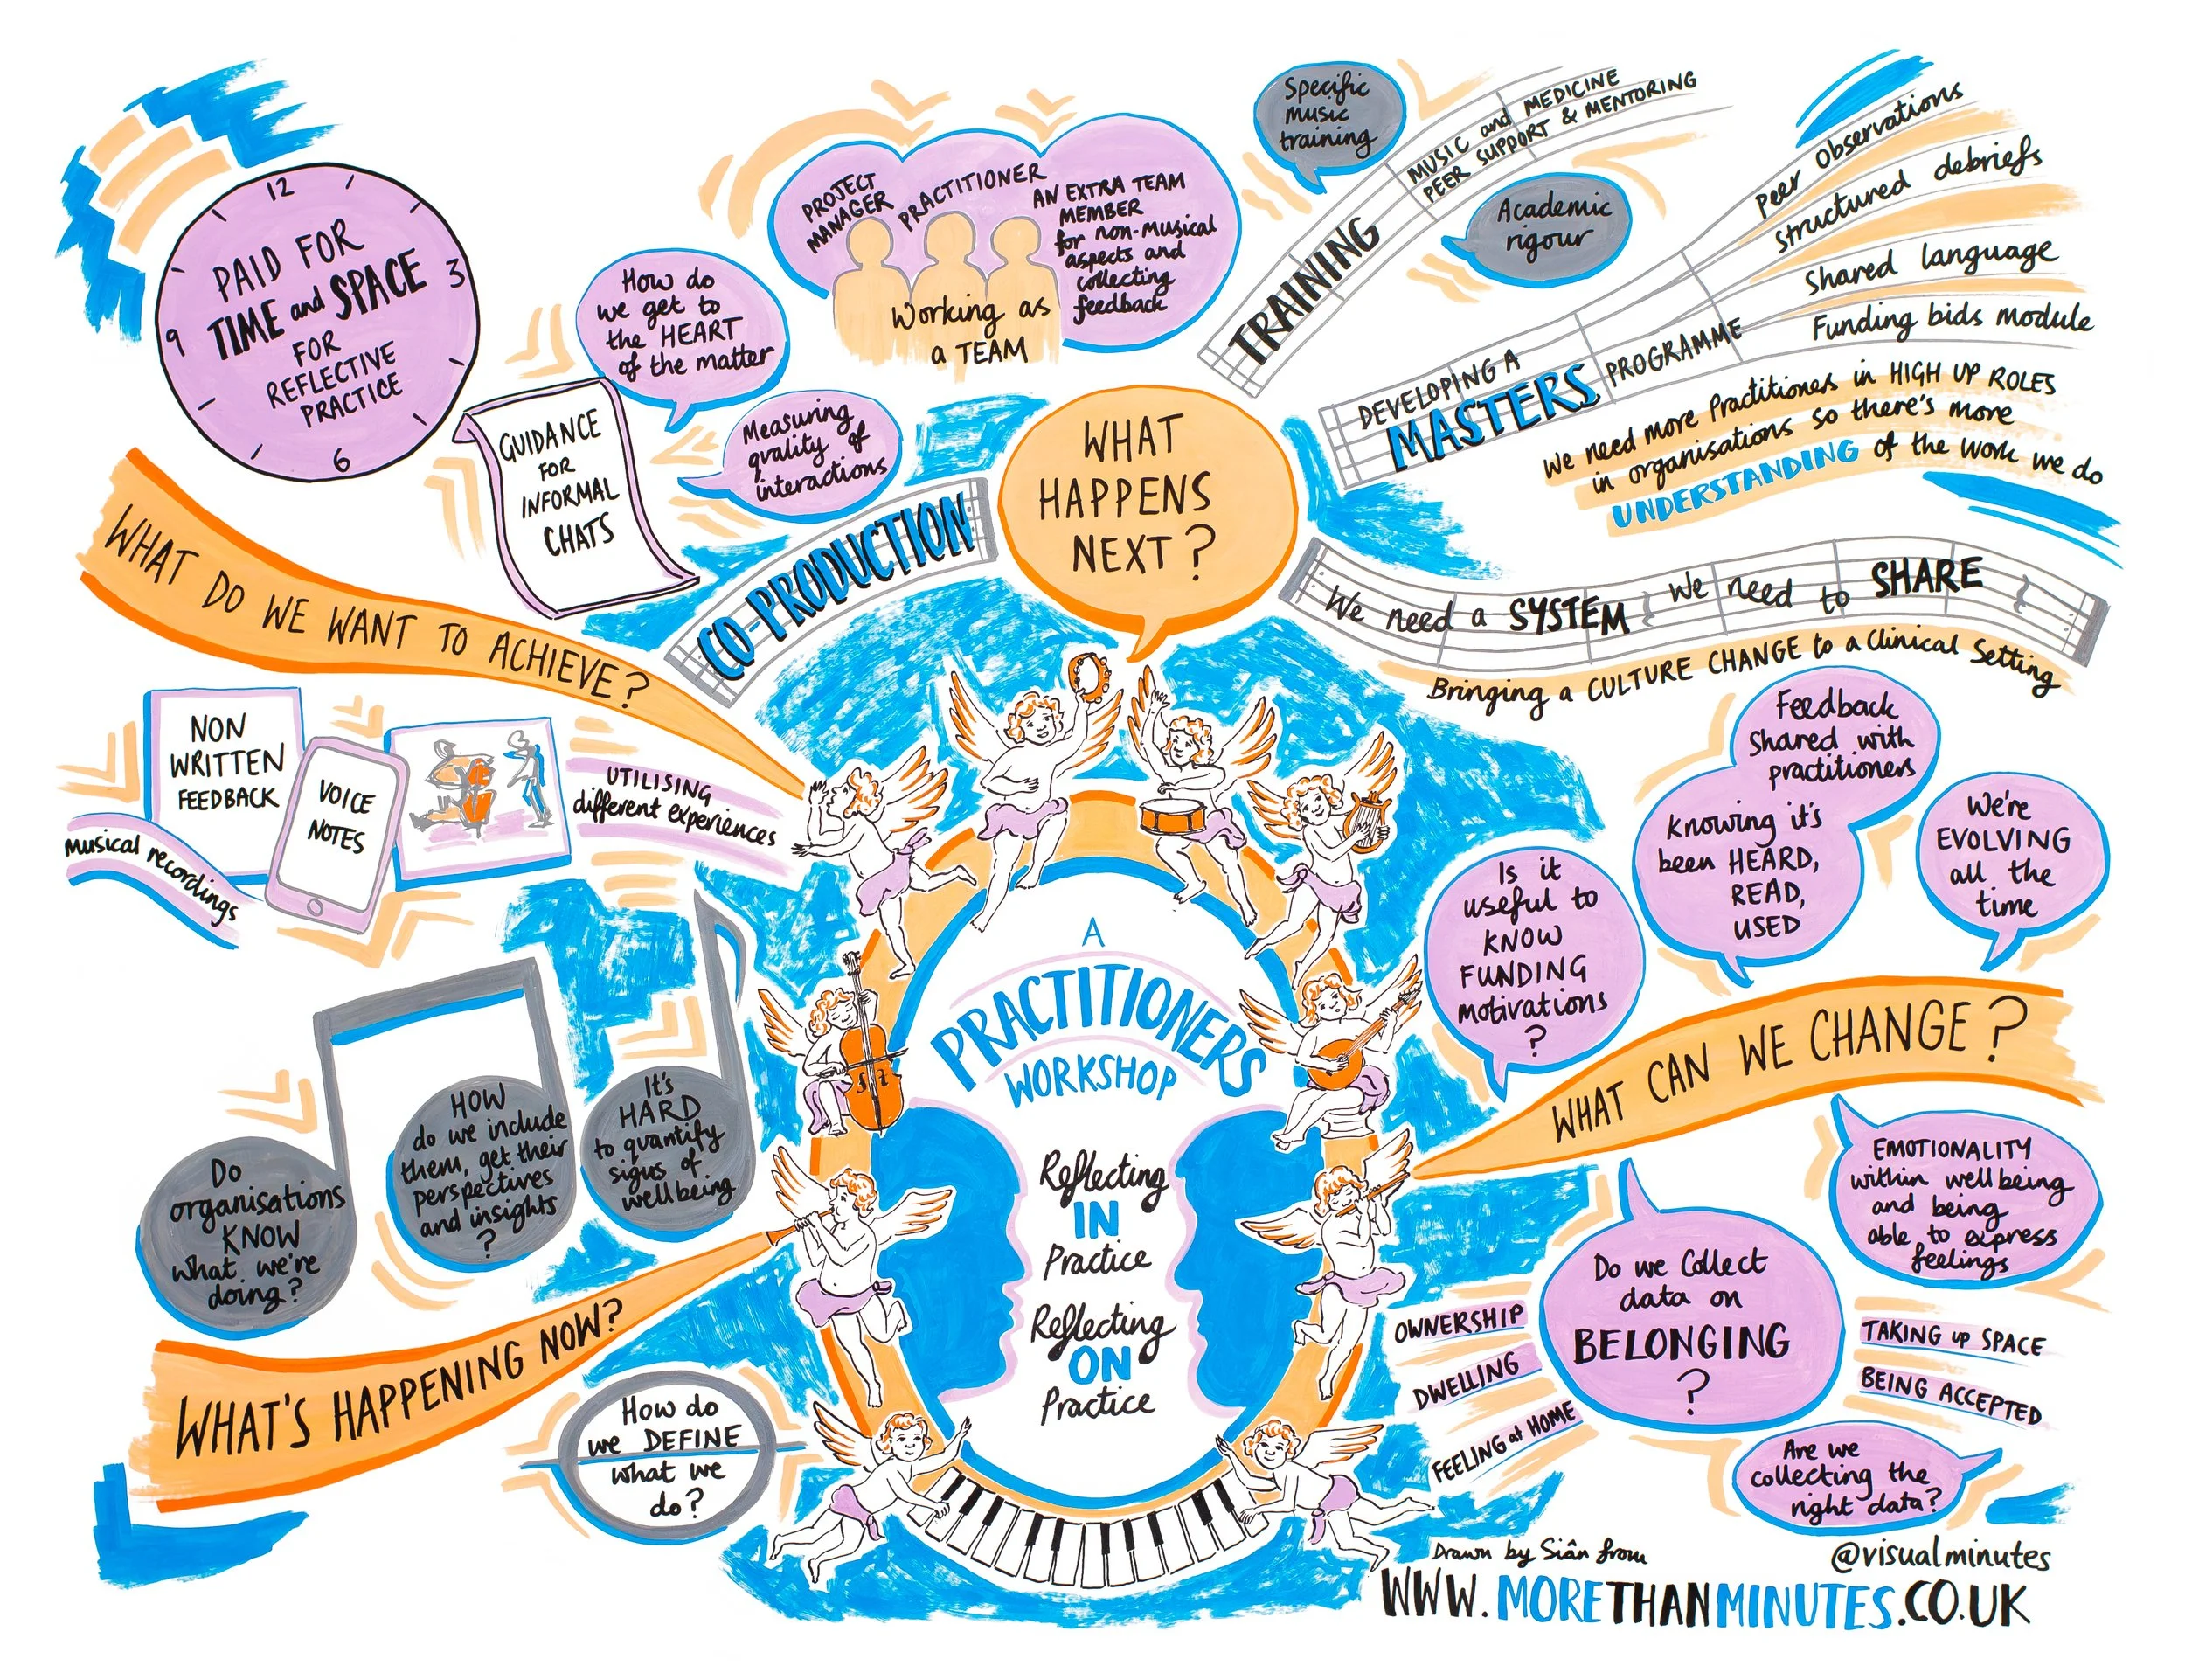 12
3
6
9
PAID FOR
TIME and SPACE
FOR
REFLECTIVE
PRACTICE
How do
we get to
the HEART
of the matter
GUIDANCE
FOR
INFORMAL
CHATS
Measuring
quality of
interactions
PROJECT
MANAGER
PRACTITIONER
AN EXTRA TEAM
MEMBER
for non-musical
aspects and
collecting
feedback
Working as
a TEAM
CO-PRODUCTION
WHAT
HAPPENS
NEXT?
Specific
music
training
TRAINING
MUSIC and MEDICINE
PEER SUPPORT & MENTORING
Academic
rigour
DEVELOPING A
MASTERS PROGRAMME
Peer Observations
Structured debriefs
Shared language
Funding bids module
We need more Practitioners in HIGH UP ROLES
in organisations so there's more
UNDERSTANDING of the work we do
We need a SYSTEM We need to SHARE
Bringing a CULTURE CHANGE to a Clinical Setting
WHAT DO WE WANT TO ACHIEVE?
NON
WRITTEN
FEEDBACK
VOICE
NOTES
musical recordings
UTILISING
different experiences
Do
organisations
KNOW
what we're
doing?
HOW
do we include
them, get their
perspectives
and insights
?
It's
HARD
to quantify
signs of
wellbeing
WHAT'S HAPPENING NOW?
How do
we DEFINE
what we
do?
A
PRACTITIONERS
WORKSHOP
Reflecting
IN
Practice
Reflecting
ON
Practice
Feedback
Shared with
practitioners
Knowing it's
been HEARD,
READ,
USED
We're
EVOLVING
all the
time
Is it
useful to
KNOW
FUNDING
motivations
?
WHAT CAN WE CHANGE?
EMOTIONALITY
within wellbeing
and being
able to express
feelings
Do we Collect
data on
BELONGING
?
OWNERSHIP
DWELLING
FEELING at HOME
TAKING up SPACE
BEING ACCEPTED
Are we
collecting the
right data?
Drawn by Siân from
@visualminutes
WWW.MORETHANMINUTES.CO.UK